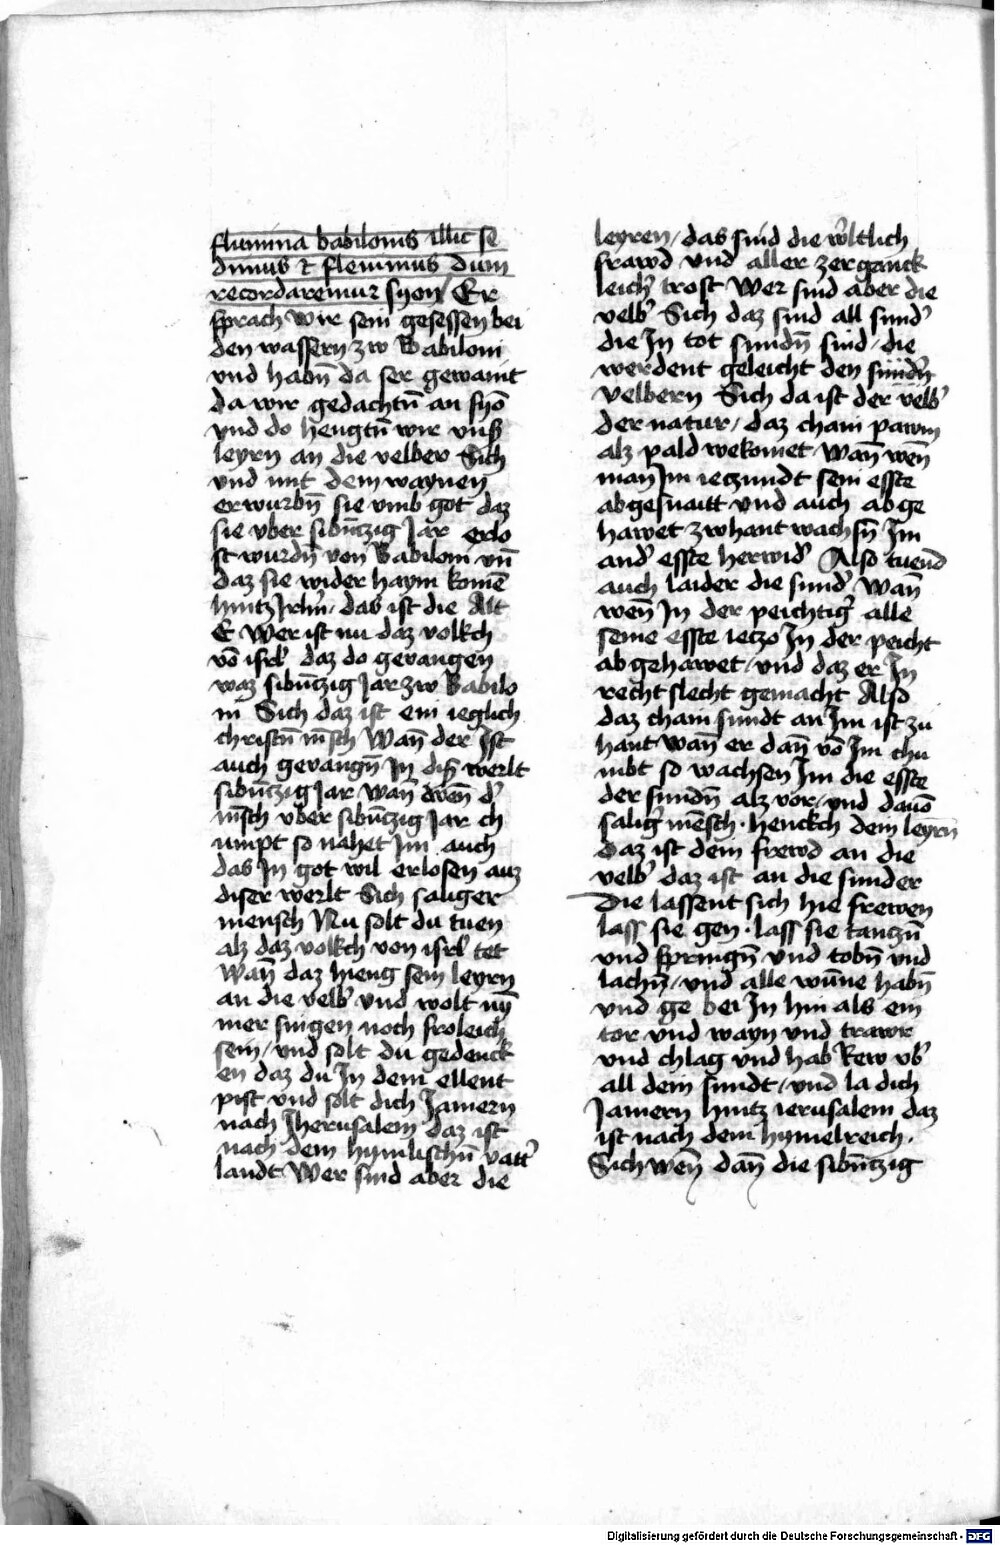 flumina babilonis illic se
dimus et fleuimus dum
recordaremur syon / Er
sprach wir sein gesessen bei
den wassern zw Babiloni
vnd habn̄ da ser gewaint
da wir gedachtn̄ an syō
vnd do hengtn̄ wir vnß
leyrn an die velber Sich
vnd mit dem waynen
erwurbn̄ sie vmb got daz
sie vber sibn̄tzig Jar erlo
st wurdn̄ von Babiloni vn̄
daz sie wider haym komē
hintz Jrlm̄ / das ist die Alt
E Wer ist nu daz volkch
vō isrl' daz do gevangen
waz sibn̄tzig Jar zw Babilo
ni Sich daz ist ein ieglich
christn̄ m̄sch Wan̄ der Jst
auch gevangn̄ Jn diß werlt
sibn̄tzig Jar wan̄ wen̄ d'
m̄sch vber sibn̄tzig Jar ch
umpt so nahet Jm auch
das Jn got wil erlosen auz
diser werlt Sich saliger
mensch Nu solt du tuen
alz daz volkch von isrl' tet
Wan̄ daz hieng sein leyrn
an die velb' vnd wolt ny̅
mer singen noch froleich
sein / vnd solt du gedenck
en daz du Jn dem ellent
pist vnd solt dich Jamern
nach Jherusalem daz ist
nach dem hymlischn̄ vatt'
landt Wer sind aber die
leyren / das sind die w'ltlich
frawd vnd aller zerganck
leich' trost Wer sind aber die
velb' Sich daz sind all sund'
die Jn tot sundn̄ sind / die
werdent geleicht den
velbern Sich da ist der velb'
der natur / daz chain pawm
alz pald wekomet / Wan̄ wen̄
man Jm ieczundt sein esste
absnaitt vnd auch abge
hawet zwhant wachsn̄ Jm
and' esste herwid' Also tuend
auch laider die sund' Wan̄
wen̄ Jn der peichtig' alle
seine esste ieczo Jn der peicht
abgehawet / vnd daz er Jn
recht slecht gemacht Also
daz chain sundt an Jm ist zu
hant wan̄ er dan̄ vō Jm chu
mbt so wachsen Jm die esste
der sundn̄ alz vor / vnd dauō
salig' mēsch · henckch dein leyrn
daz ist dein frewd an die
velb' daz ist an die sunder
Die lassent sich hie frewen
lass sie gen · lass sie tantzn̄
vnd springn̄ vnd tobn̄ vnd
lachn̄ / vnd alle wūne habn̄
vnd ge bei Jn hin als ein
tor vnd wayn vnd trawr
vnd chlag vnd hab Rew vb'
all dein sundt / vnd la dich
Jamern hintz ierusalem daz
ist nach dem hymelreich ·
Sich wen̄ dan̄ die sibn̄tzig
Digitalisierung gefördert durch die Deutsche Forschungsgemeinschaft - DFG